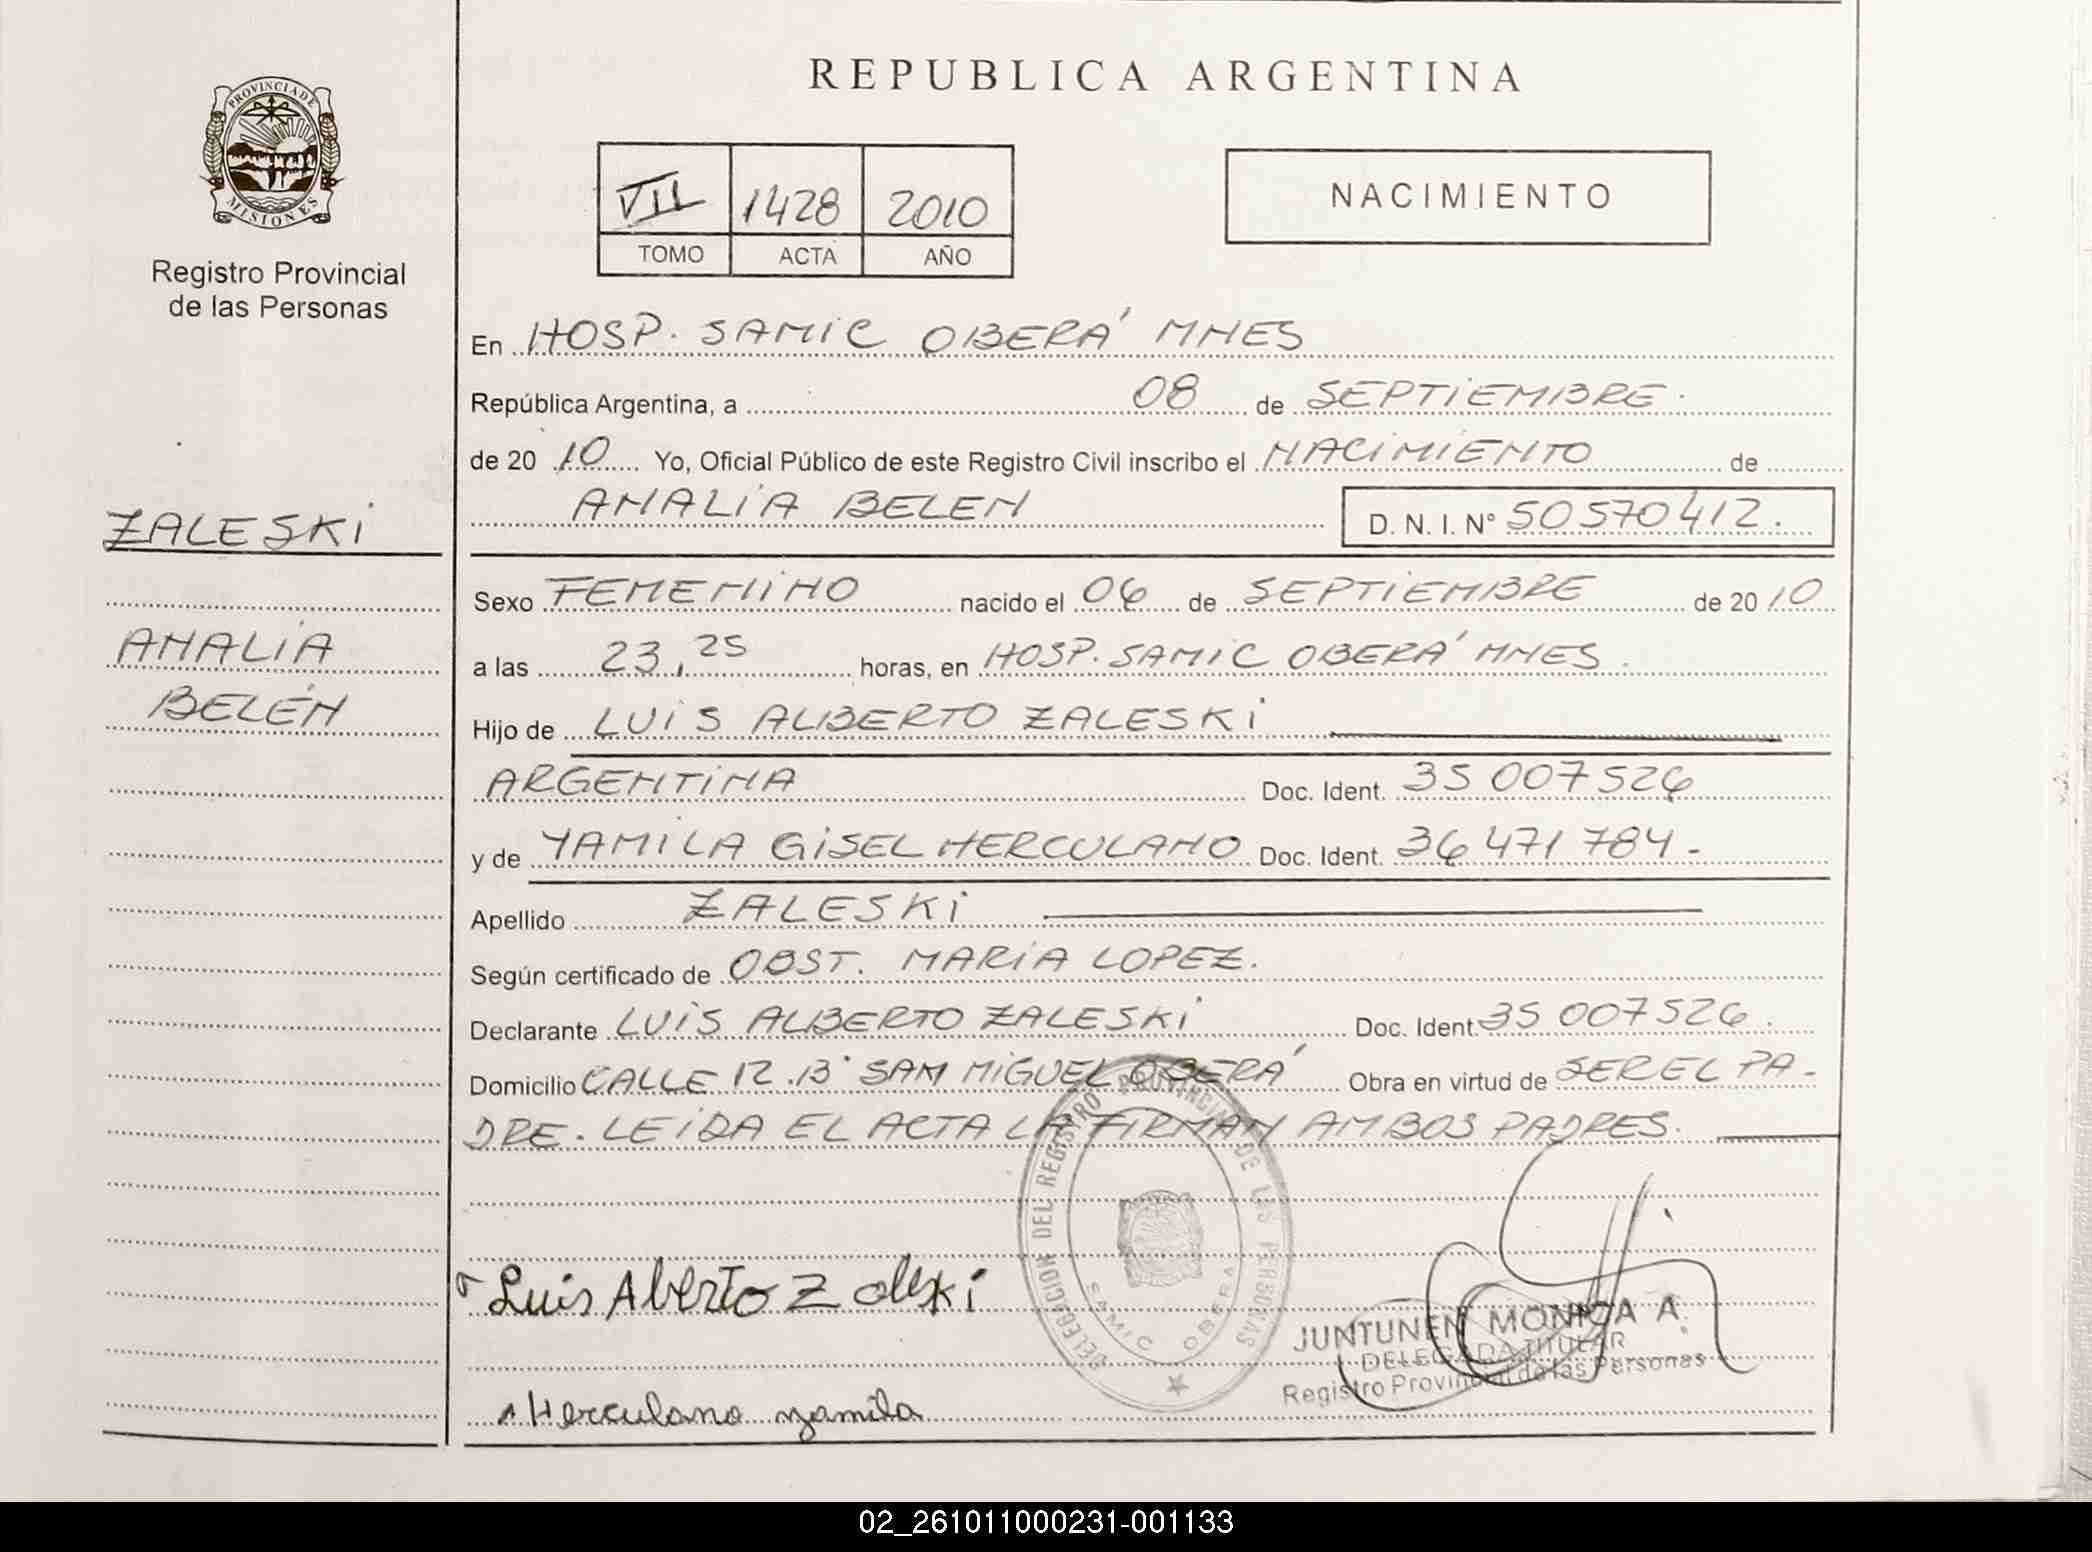 REPUBLICA ARGENTINA
PROVINCIA DE
MISIONES
Registro Provincial
de las Personas
VII 1428 2010
TOMO ACTA AÑO
NACIMIENTO
En HOSP. SAMIC OBERÁ MNES
República Argentina, a 08 de SEPTIEMBRE.
de 20 10 Yo, Oficial Público de este Registro Civil inscribo el NACIMIENTO de
ANALIA BELEN D. N. I. N° 50570412.
ZALESKI
ANALIA
BELÉN
Sexo FEMENINO nacido el 06 de SEPTIEMBRE de 20 10
a las 23,25 horas, en HOSP. SAMIC OBERÁ MNES.
Hijo de LUIS ALBERTO ZALESKI
ARGENTINA Doc. Ident. 35 007526
y de YAMILA GISEL HERCULANO Doc. Ident. 36 471 784-
Apellido ZALESKI
Según certificado de OBST. MARIA LOPEZ.
Declarante LUIS ALBERTO ZALESKI Doc. Ident. 35 007526.
Domicilio CALLE 12. B° SAN MIGUEL OBERÁ Obra en virtud de SER EL PA-
DRE. LEIDA EL ACTA LA FIRMAN AMBOS PADRES.
DELEGACION DEL REGISTRO PROVINCIAL DE LAS PERSONAS
SAMIC OBERA
Luis Alberto Zaleski
Herculano yamila
JUNTUNEN MONICA A.
DELEGADA TITULAR
Registro Provincial de las Personas
02_261011000231-001133